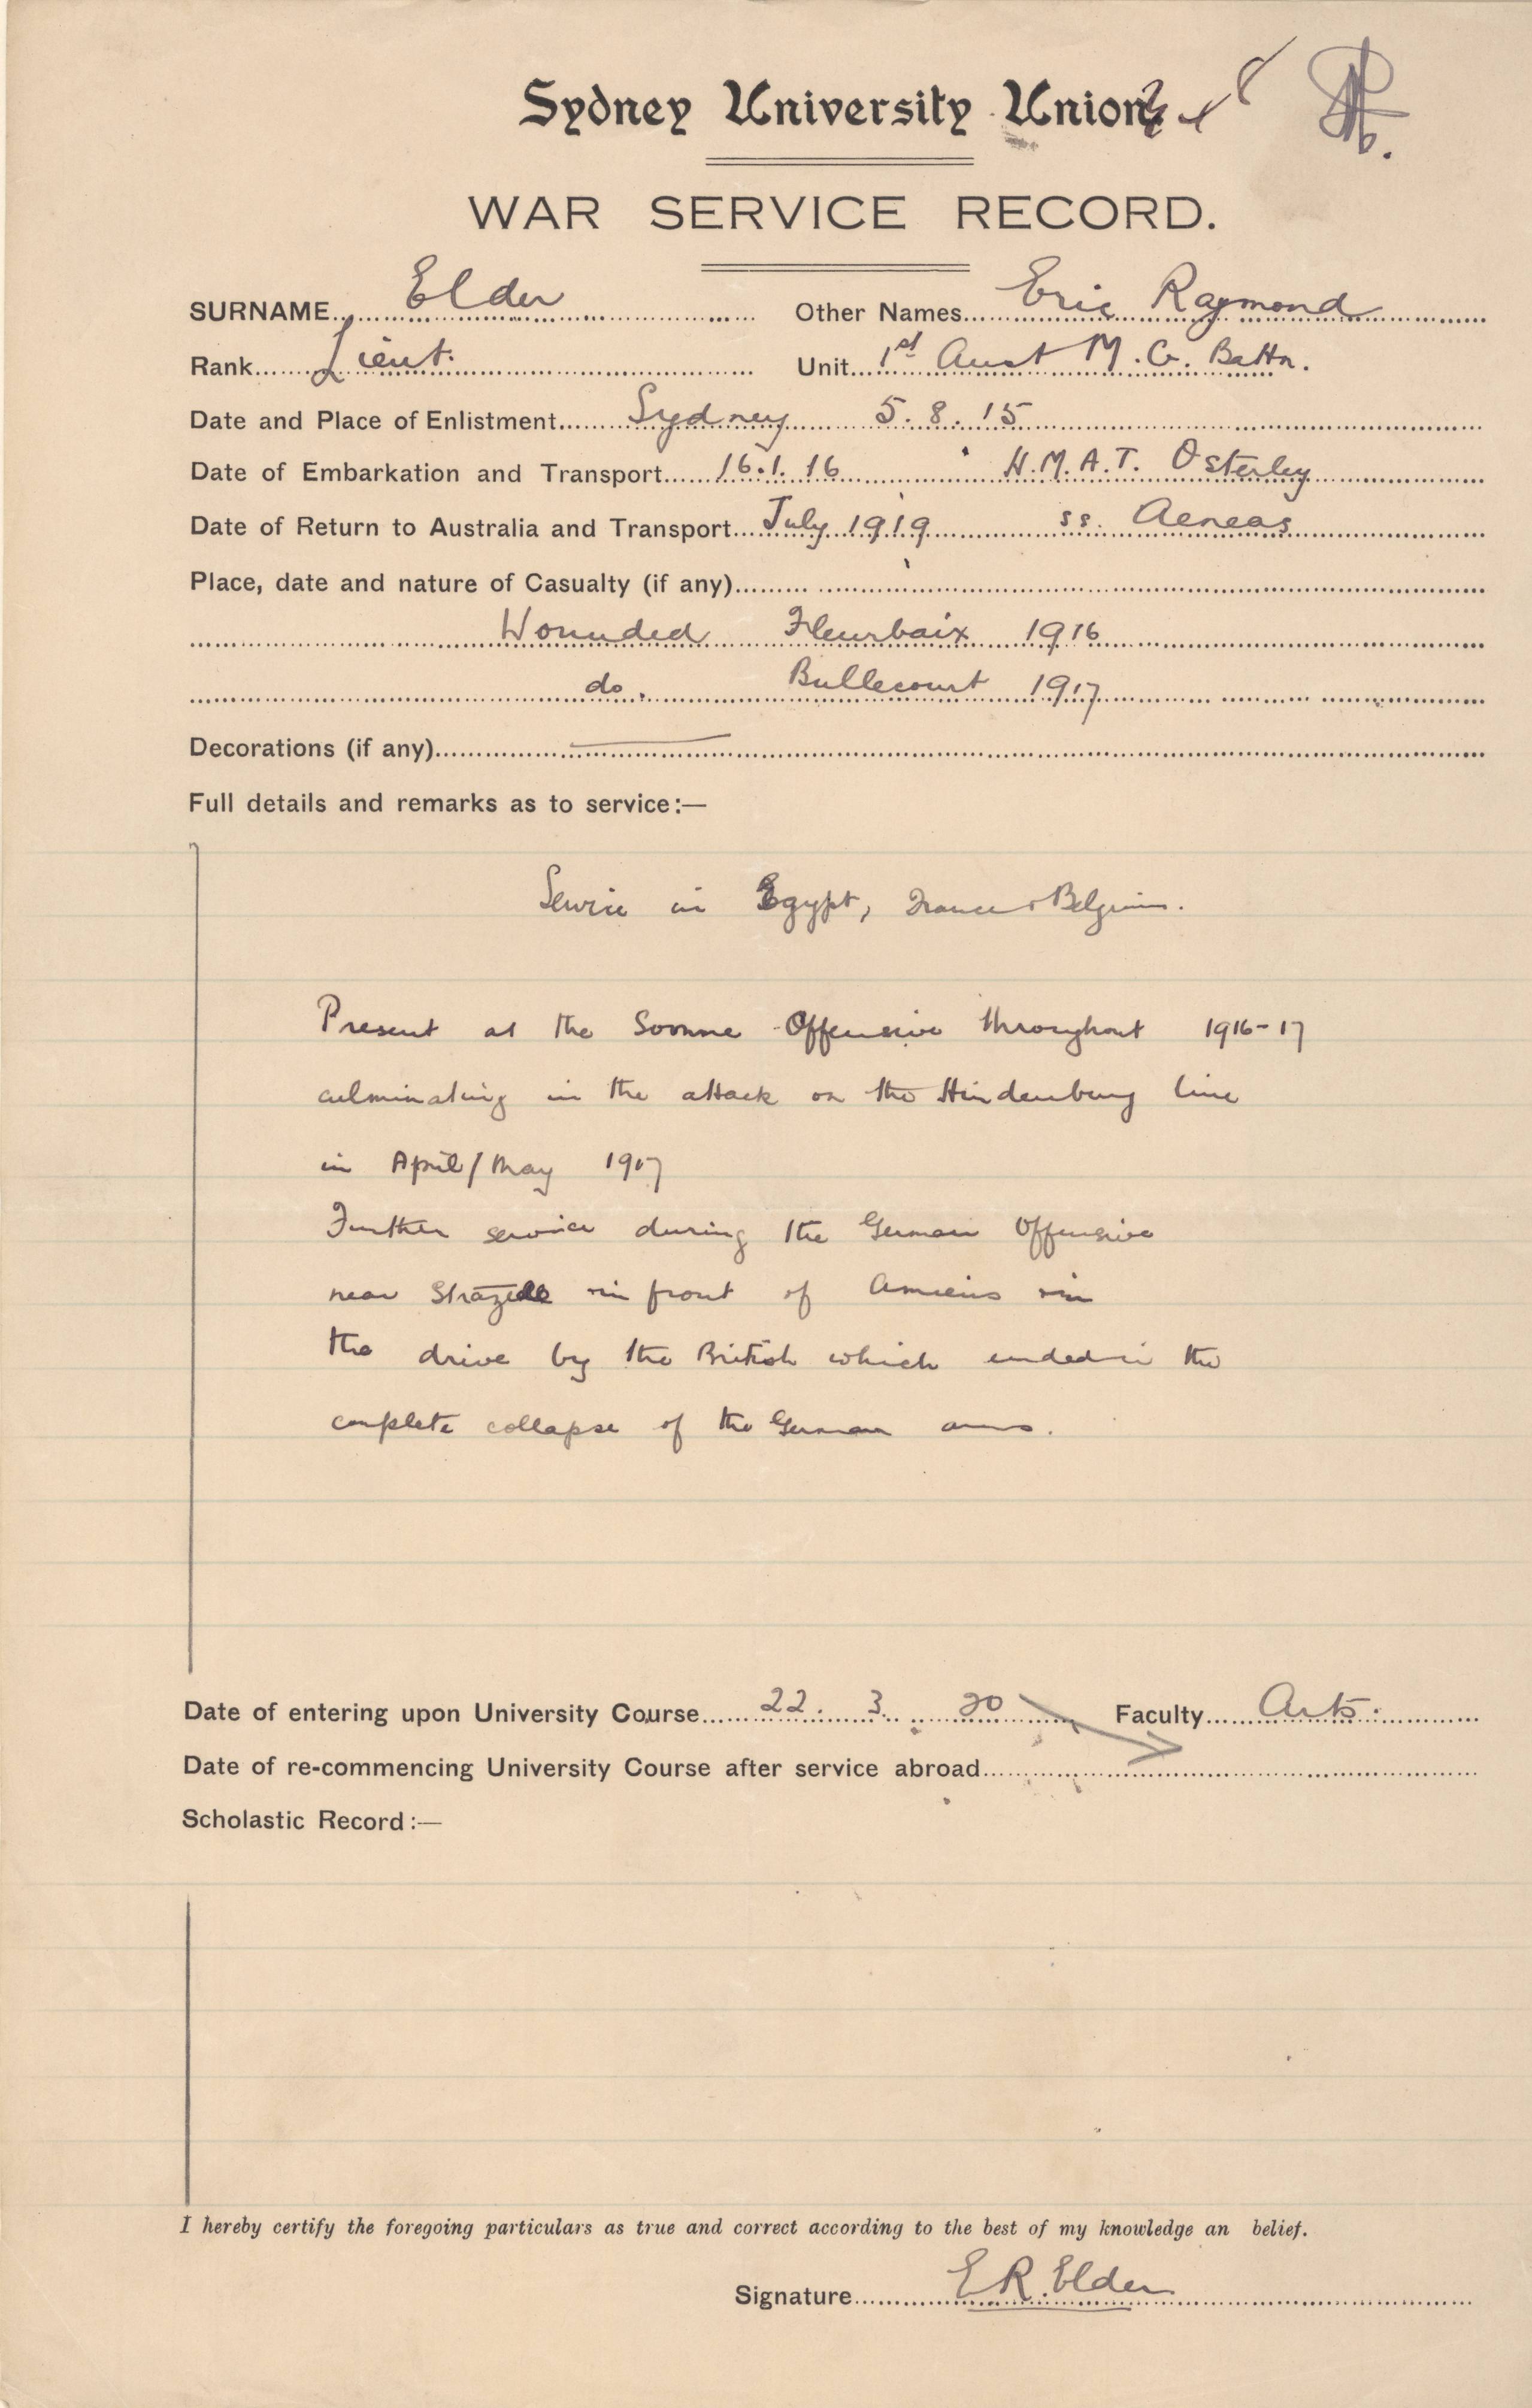 Sydney University Union
WAR SERVICE RECORD.
SURNAME Elder Other Names Eric Raymond
Rank Lieut. Unit 1st Aust M. G. Battn.
Date and Place of Enlistment Sydney 5. 8. 15
Date of Embarkation and Transport 16. 1. 16 H.M.A.T. Osterley
Date of Return to Australia and Transport July 1919 ss. Aeneas
Place, date and nature of Casualty (if any)
Wounded Fleurbaix 1916
do. Bullecourt 1917
Decorations (if any)
Full details and remarks as to service:—
Service in Egypt, France & Belgium.
Present at the Somme Offensive throughout 1916-17
culminating in the attack on the Hindenburg line
in April/May 1917
Further service during the German Offensive
near Strazeele in front of Amiens
the drive by the British which ended in the
complete collapse of the German arms.
Date of entering upon University Course 22. 3. 20 Faculty Arts.
Date of re-commencing University Course after service abroad
Scholastic Record:—
I hereby certify the foregoing particulars as true and correct according to the best of my knowledge an belief.
Signature E R. Elder